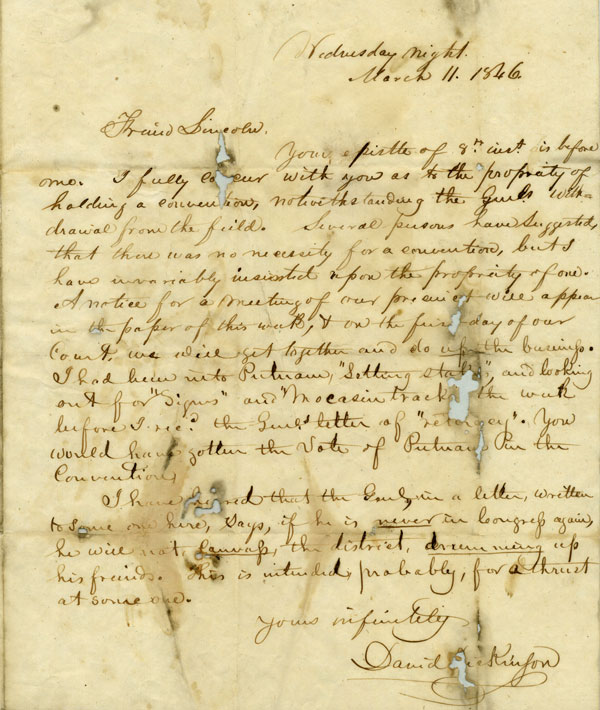 Wednesday night.
March 11. 1846.
Freind Lincoln.
Your epistle of 8th inst. is before
me. I fully concur with you as to the propriety of
holding a convention, notwithstanding the Genls with-
drawal from the field. Several persons have suggested,
that there was no necessity for a convention, but I
have invariably insisted upon the propriety of one.
A notice for a meeting of our precinct will appear
in the paper of this week, & on the first day of our
Court, we will get together and do up the business.
I had been into Putnam, "Setting stakes", and looking
out for "Signs" and "Mocasin tracks" the week
before I rec'd the Genls letter of "". You
would have gotten the Vote of Putnam in the
Convention.
I have heared that the Genl, in a letter, written
to some one here, says, if he is never in Congress again,
he will not, canvass, the district, drumming up
his freinds. This is intended, probably, for a thrust
at some one.
Yours infinitely
David Dickinson